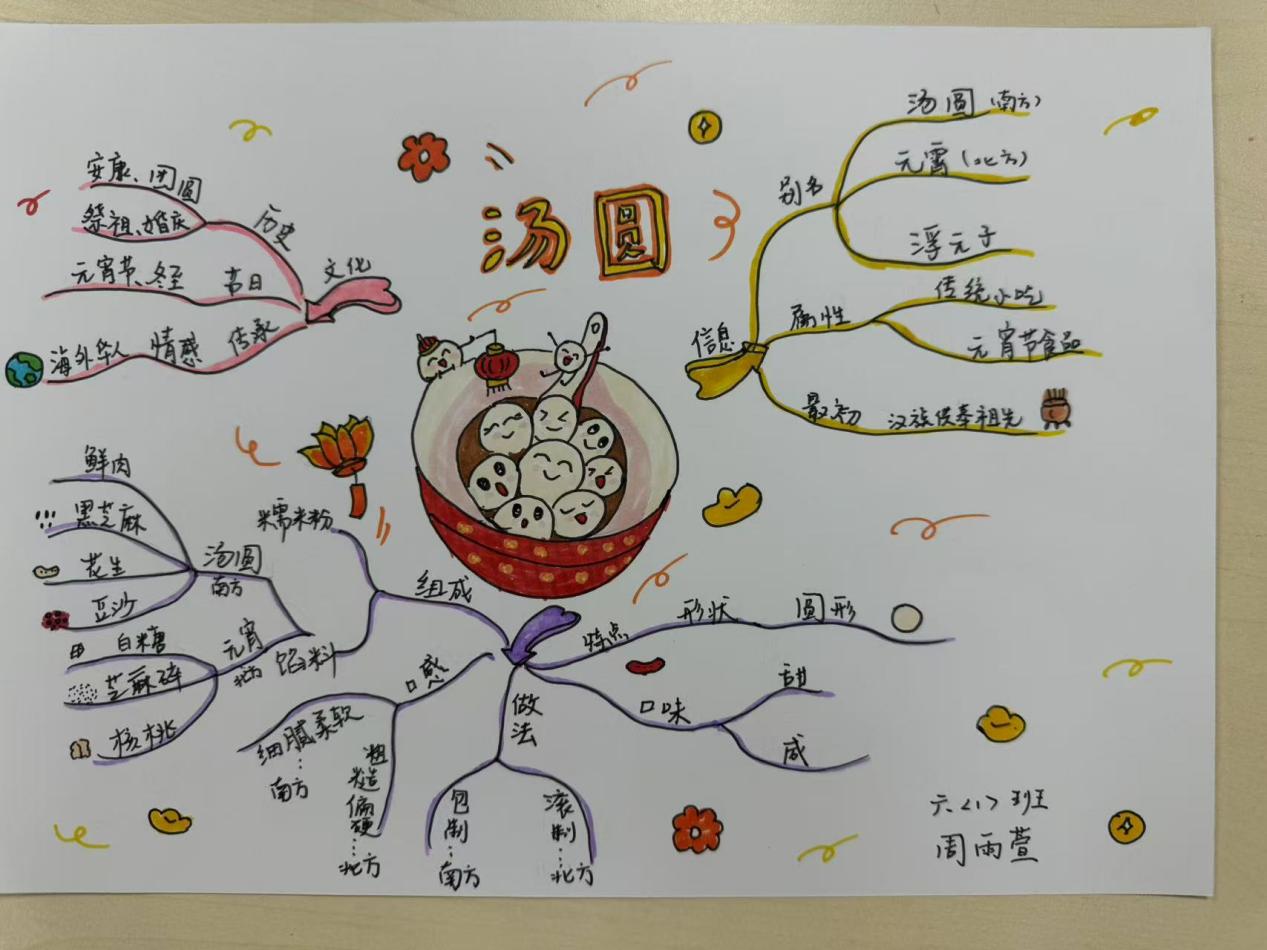 汤圆
信息
别名
汤圆（南方）
元宵（北方）
浮元子
属性
传统小吃
元宵节食品
最初 汉族供奉祖先
文化
历史
安康、团圆
祭祖、婚庆
节日
元宵节、冬至
传承
情感
海外华人
组成
糯米粉
馅料
汤圆
南方
鲜肉
黑芝麻
花生
豆沙
元宵
北方
白糖
芝麻碎
核桃
口感
细腻柔软…南方
粗糙偏硬…北方
做法
包制…南方
滚制…北方
特点
形状
圆形
口味
甜
咸
六<1>班
周雨萱